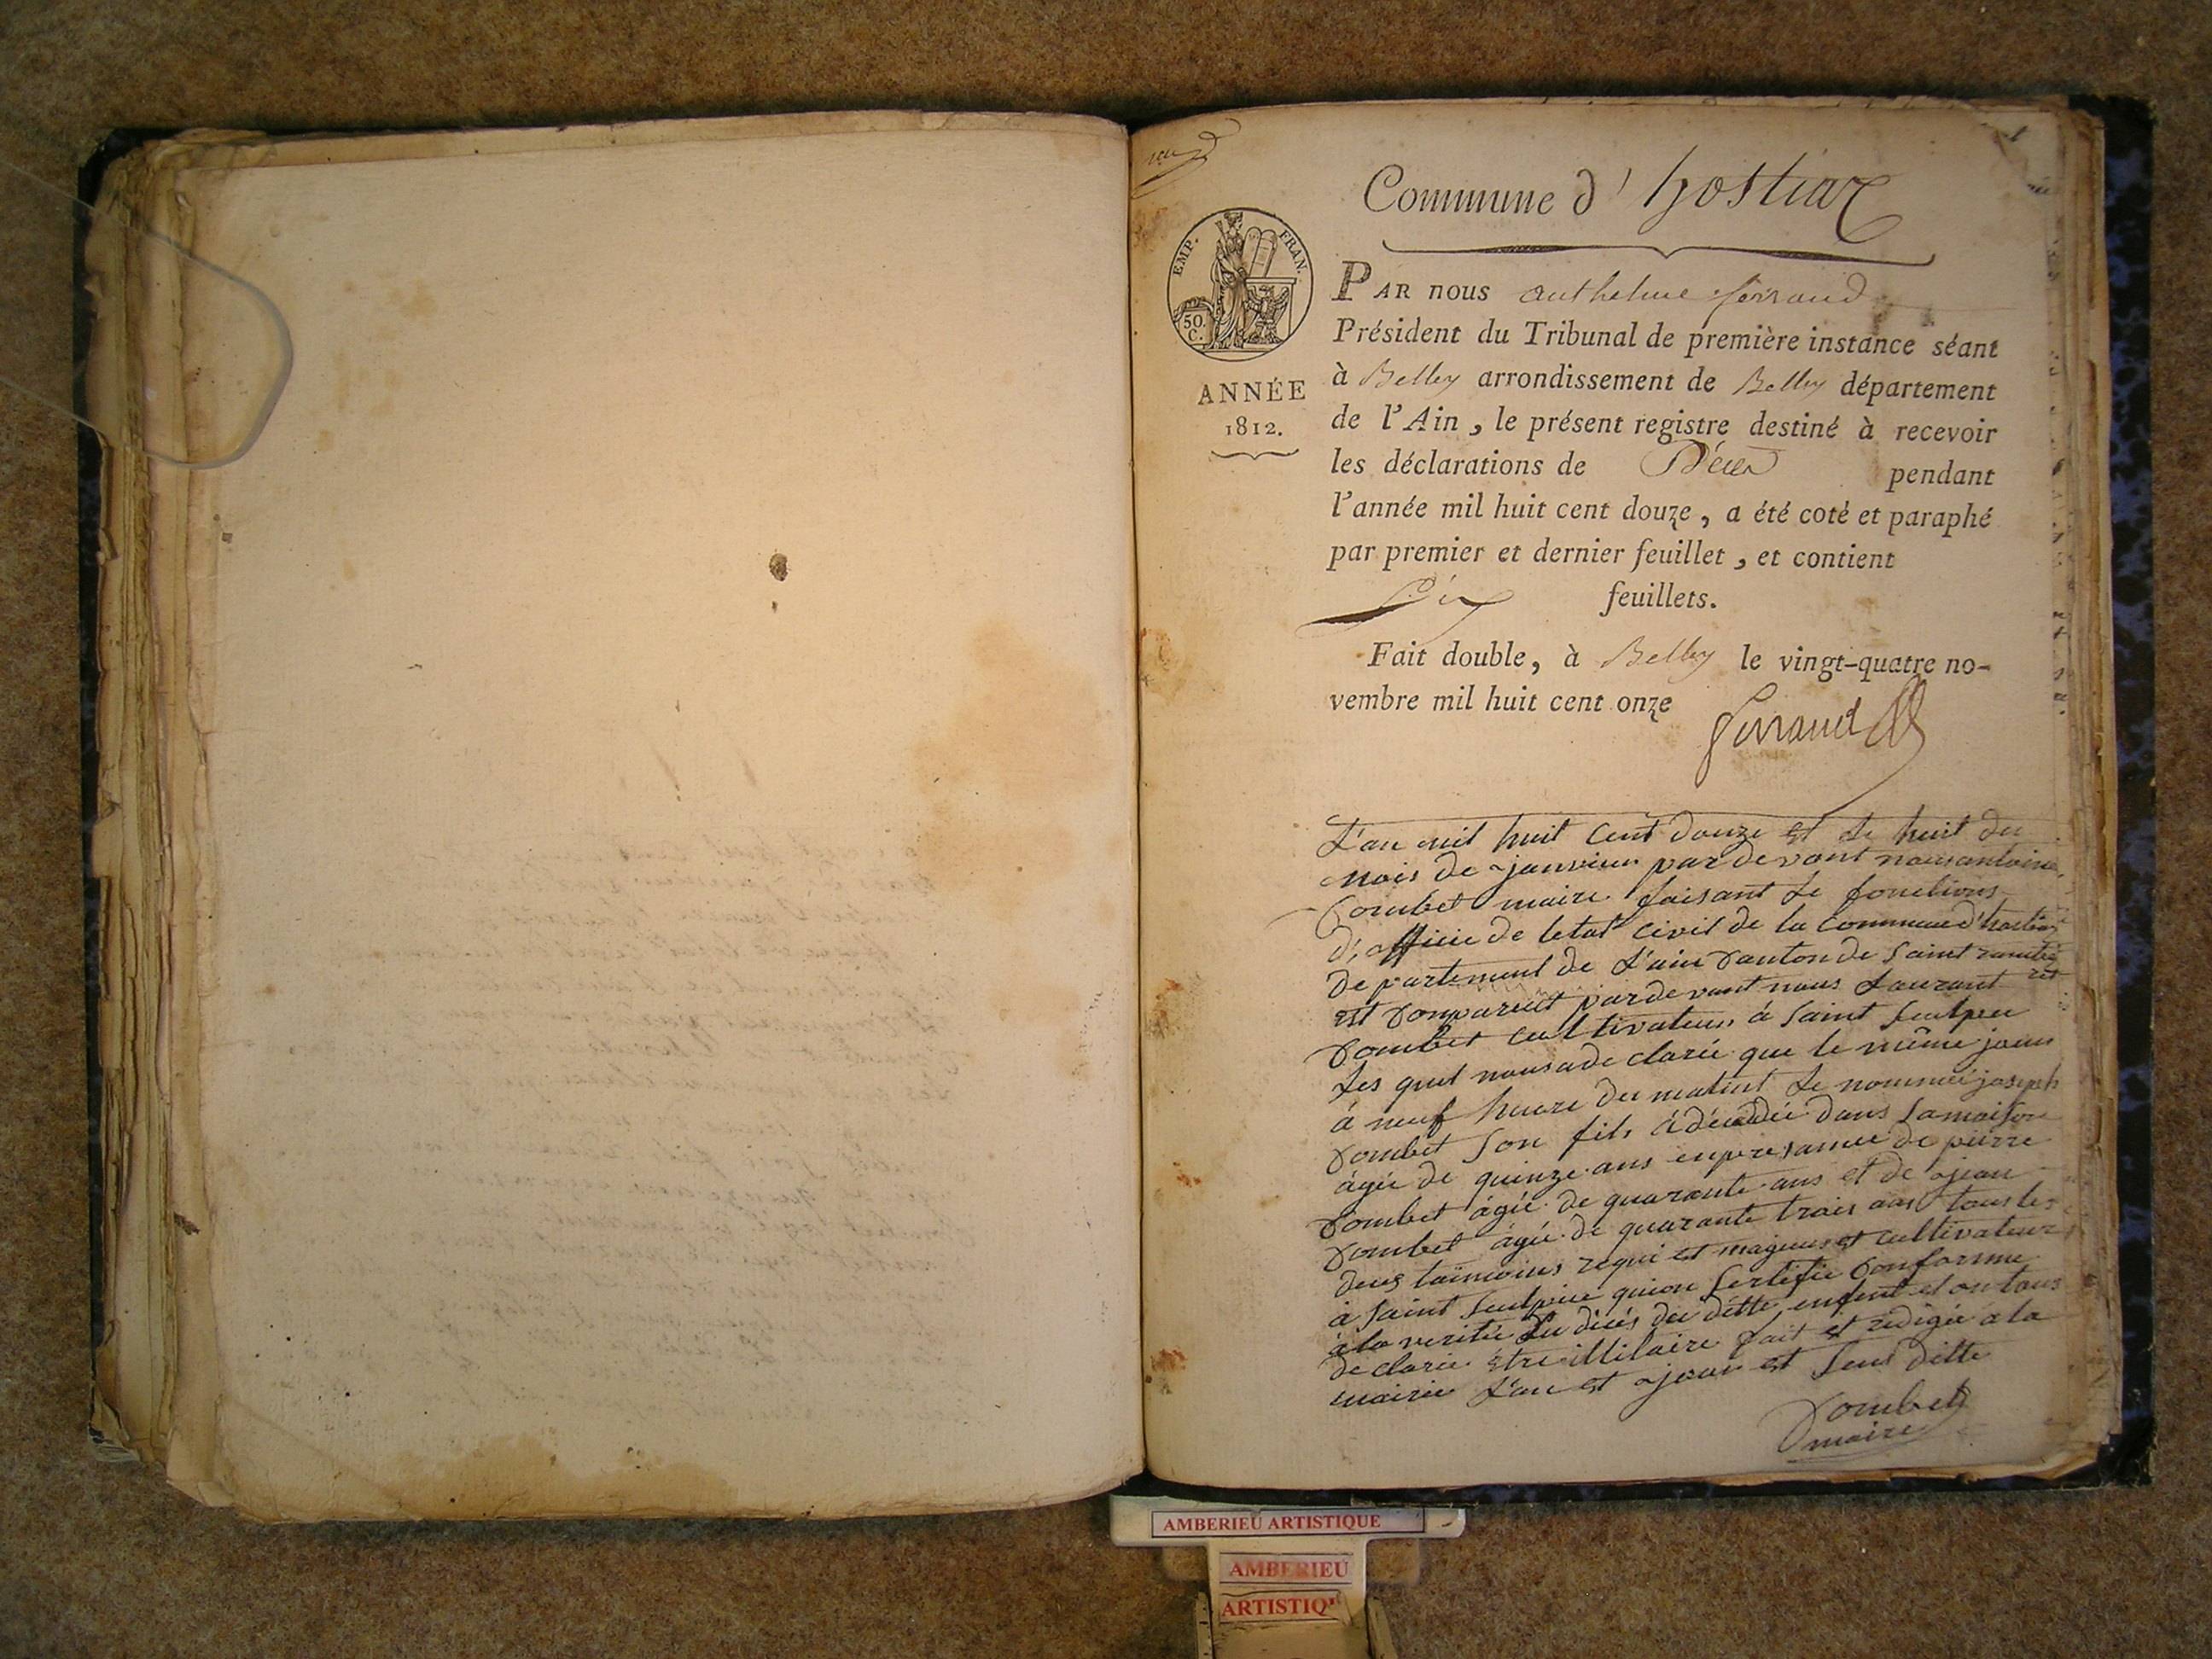 1
Commune d'hostiaz
EMP. FRAN.
50.
C.
ANNÉE
1812.
PAR nous anthelme ferrand
Président du Tribunal de première instance séant
à Belley arrondissement de Belley département
de l'Ain, le présent registre destiné à recevoir
les déclarations de Décès pendant
l'année mil huit cent douze, a été coté et paraphé
par premier et dernier feuillet, et contient
Dix feuillets.
Fait double, à Belley le vingt-quatre no-
vembre mil huit cent onze
ferrand
L'an mil huit cent douze et le huit du
mois de janvier par devant nous antoine
Combet maire faisant le fonctions
d'officie de letat civil de la commune d'hostias
departement de L'ain Canton de Saint rambe
est Comparut pardevant nous Laurant
Combet cultivateur à Saint Sulpis
les quel nous a de clarée que le même jour
à neuf heure du matint le nommée joseph
Combet Son fils à décédée dans sa maison
àgée de quinze ans en presance de pierre
Combet àgée de quarante ans et de jean
Combet àgée de quarante trois ans tous les
deux taimoins requi et mageur et cultivateur
à Saint Sulpice qui on Sertifie Conforme
à la veritée du décés du ditte enfent et on tous
de clarée étre illitaire fait et redigée a la
mairie L'an et jour et Sus ditte
Combet
maire
AMBERIEU ARTISTIQUE
AMBERIEU
ARTISTIQ'